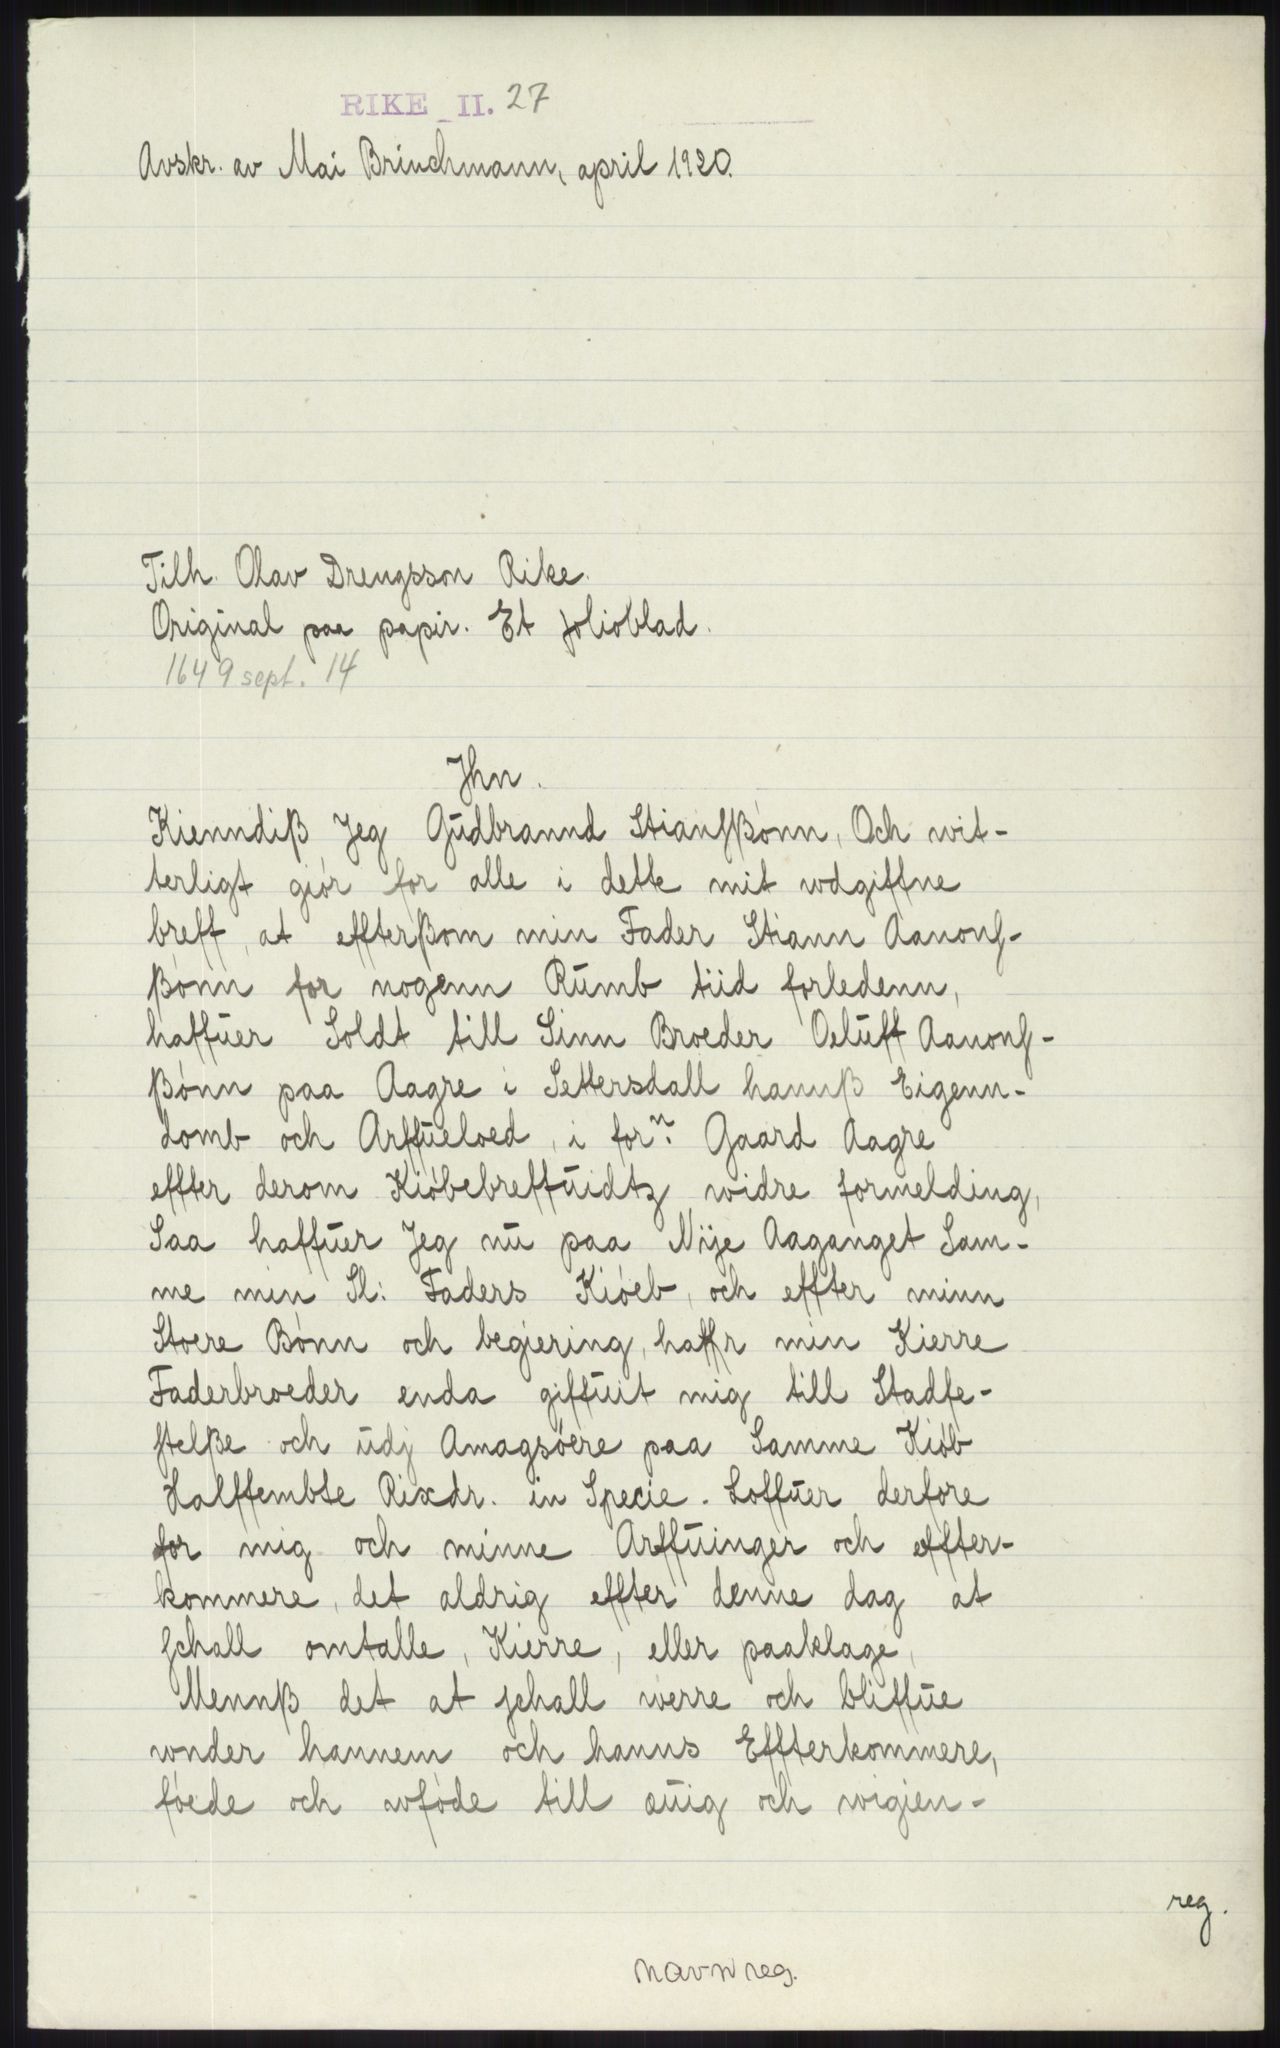 RIKE II. 27
Avskr. av Mai Brinchmann, april 1920.
Tilh. Olav Drengsson Rike.
Original paa papir. Et folioblad.
1649 sept. 14
Jhn.
Kienndiß Jeg Gudbrannd Stiansßønn, Och wit-
terligt giør for alle i dette mit wdgiffne
breff, at effterßom min Fader Stiann Aanons-
ßønn for nogenn Rumb tiid forledenn,
haffuer Soldt till Sinn Broeder Oeluff Aanons-
ßønn paa Aagre i Settersdall hannß Eigenn-
domb och Arffueloed, i forn: Gaard Aagre
effter derom Kiøbebreffuidtz widre formelding,
Saa haffuer Jeg nu paa Nÿe Aaganget Sam-
me min Sl: Faders Kiøeb, och effter minn
Stoere Bønn och begiering, haffr min Kierre
Faderbroeder enda giffuit mig till Stadfe-
stelße och udj Amagsøere paa Samme Kiøb
Halffembte Rixdr. in Specie. Loffuer derfore
for mig och minne Arffuinger och effter-
kommere, det aldrig effter denne dag at
schall omtalle, Kierre, eller paaklage,
Mennß det at schall werre och bliffue
wnder hannem och hanns Effterkommere,
føede och wføde till æuig och wigien-
reg.
navnreg.